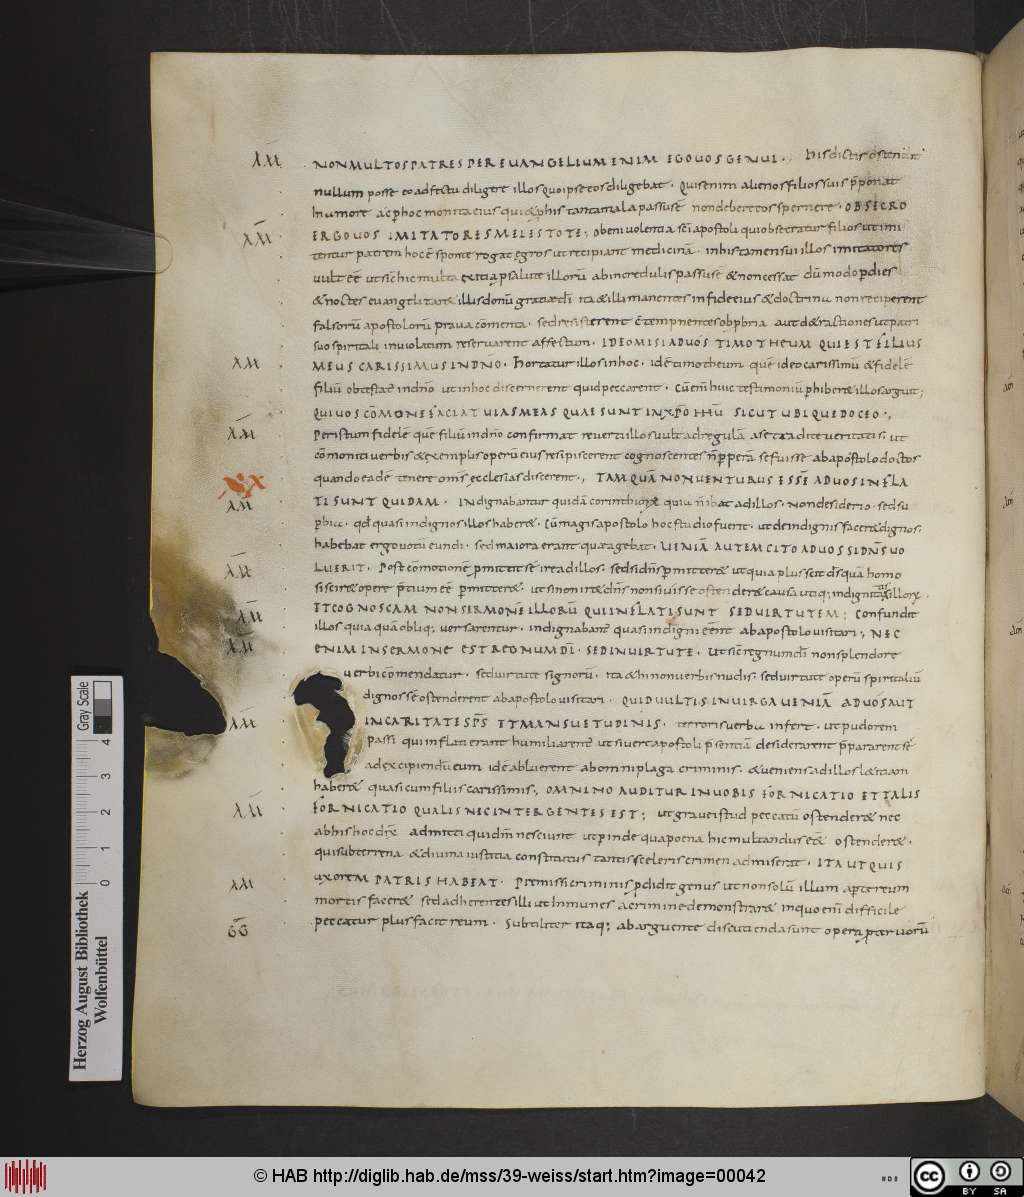 NON MULTOS PATRES PER EVANGELIUM ENIM EGO VOS GENUI. his dictis ostendit
nullum posse eo adfectu diligere illos quo ipse eos diligebat. quis enim alienos filios suis p̄ponat
In amore ac p hoc monita eius qui & p his tanta mala passus ē non debere eos spernere. OBSECRO
ERGO VOS IMITATORES MEI ESTOTE; obenivolentia sc̄i apostoli qui obsecratur filios ut imi
tentur patrem hoc ē sponte rogat egros ut recipiant medicinā. in his tamen sui illos imitatores
vult eē ut sic hic multa exitia p salute illorū ab incredulis passus ē & non cessat dūmodo p dies
& noctes evangelizare illis donū gratiae dī ita & illi manentes in fide eius & doctrina non reciperent
falsorū apostolorū prava cōmenta. sed resisterent c̄tempnentes obpbria aut detractiones ut patri
suo spiritali inviolatum reservarent affectum. IDEO MISI AD VOS TIMOTHEUM QUI EST FILIUS
MEUS CARISSIMUS IN DNO. Hortatur illos in hoc. idē timotheum quē ideo carissimū & fidelē
filiū obtestat̄ in dn̄o ut in hoc discernerent quid peccarent. cū em̄ huic testimoniū phiberet illos arguit;
QUI VOS CŌMONEFACIAT VIAS MEAS QUAE SUNT IN XP̄O IH̄U SICUT UBIQUE DOCEO.,
Per istum fidelē quē filiū in dn̄o confirmat reverti illos vult ad regulā a se traditę veritatis. ut
cōmoniti verbis & exemplis operū eius resipiscerent cognoscentes n̄ pperā se fuisse ab apostolo doctos
quando eadē tenere omīs ecclesias discerent., TAMQUĀ NON VENTURUS ESSĒ AD VOS INFLA
TI SUNT QUIDAM. Indignabantur quidā corinthiorum quia n̄ ibat ad illos. non desiderio. sed su
pbia. qd quasi indignos illos haberet. cū magis apostolo hoc studio fuerit. ut de indignis faceret dignos.
habebat ergo votū eundi. sed maiora erant quae agebat. VENIĀ AUTEM CITO AD VOS SI DN̄S VO
LUERIT. Post cōmotionē pmittit se ire ad illos. sed si dn̄s pmitteret ut quia plus scit dš quā homo
si sciret opere p̄tium eē pmitteret. ut si non iret dn̄s non sivisse ostenderet causa utiq; indignitatis illorum.
ET COGNOSCAM NON SERMONĒ ILLORŪ QUI INFLATI SUNT SED VIRTUTEM; Confundit
illos quia quā obliq; versarentur. indignabant̄ quasi indigni eēnt ab apostolo visitari; NEC
ENIM IN SERMONE EST REGNUM DI. SED IN VIRTUTE. Ut sic regnum dī non splendore
verbi cōmendatur. sed virtute signorū. ita & hi non verbis nudis. sed virtute operū spiritaliū
dignos se ostenderent ab apostolo visitari. QUID VULTIS IN VIRGA VENIĀ AD VOS AUT
IN CARITATE SPS ET MANSUETUDINIS. terroris verba infert. ut pudorem
passi qui inflati erant humiliarent̄ ut si vere apostoli psentiā desiderarent p̄pararent se
ad excipiendū eum idē abluerent ab omni plaga criminis. & veniens ad illos lętitiam
haberet quasi cum filiis carissimis., OMNINO AUDITUR IN VOBIS FORNICATIO ET TALIS
FORNICATIO QUALIS NEC INTER GENTES EST; ut grave istud peccatū ostenderet nec
ab his hoc dix̄ admitti qui dm̄ nesciunt ut pinde qua poena hic multandus eēt ostenderet.
qui sub terrena & divina iustitia constitutus tanti sceleris crimen admiserit. ITA UT QUIS
UXOREM PATRIS HABEAT. Praemissi criminis pdidit genus ut non solū illum apte reum
mortis faceret sed adherentes illi ut Inmunes a crimine demonstraret in quo enī difficile
peccatur plus facit reum. Subtiliter itaq; ab arguente discutienda sunt opera p̄ter uorū
Gray Scale
0 1 2 3 4
Herzog August Bibliothek
Wolfenbüttel
© HAB http://diglib.hab.de/mss/39-weiss/start.htm?image=00042
CC BY SA